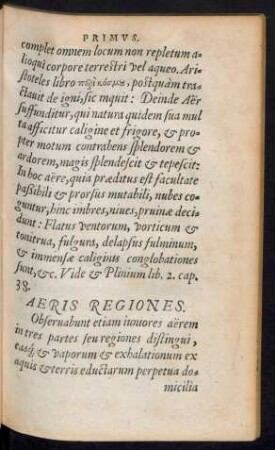 PRIMVS.
complet omnem locum non repletum a-
lioqui corpore terrestri vel aqueo. Ari-
stoteles libro περὶ κόσμου, postquàm tra-
ctauit de igni, sic inquit: Deinde Aër
suffunditur, qui natura quidem sua mul
ta afficitur caligine et frigore, & pro-
pter motum contrahens splendorem &
ardorem, magis splendescit & tepescit:
In hoc aëre, quia præditus est facultate
passibili & prorsus mutabili, nubes co-
guntur, hinc imbres, niues, pruinæ deci-
dunt: Flatus ventorum, vorticum &
tonitrua, fulgura, delapsus fulminum,
& immensæ caligints conglobationes
sunt, &c. Vide & Plinium lib. 2. cap.
38.
AERIS REGIONES.
Obseruabunt etiam iuniores aërem
in tres partes seu regiones distingui,
easq́; & vaporum & exhalationum ex
aquis & terris eductarum perpetua do-
micilia